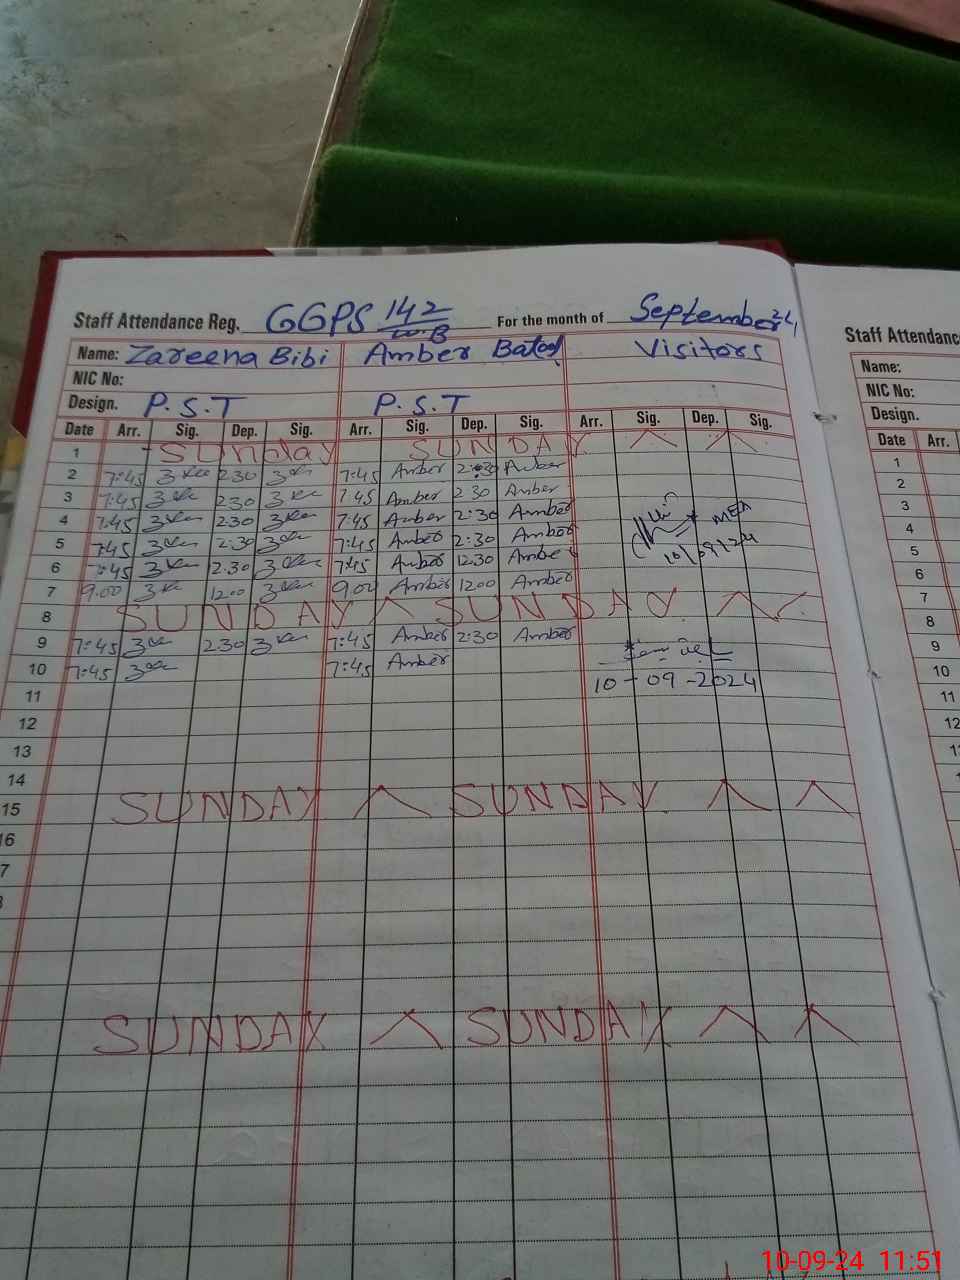 Staff Attendance Reg. GGPS 142/10-B For the month of September 24
Name: Zareena Bibi Amber Batool Visitors
NIC No:
Design. P.S.T P.S.T
Date Arr. Sig. Dep. Sig. Arr. Sig. Dep. Sig. Arr. Sig. Dep. Sig.
1 Sunday SUNDAY
2 7:45 2:30 7:45 Amber 2:30 Amber
3 7:45 2 30 7 45 Amber 2 30 Amber
4 7:45 2:30 7:45 Amber 2:30 Amber
5 7:45 2:30 7:45 Amber 2:30 Amber
6 7:45 12.30 7:45 Amber 12:30 Amber
MEA
10/09/24
7 9.00 12.00 9.00 Amber 12.00 Amber
8 SUNDAY SUNDAY
9 7:45 2:30 7:45 Amber 2:30 Amber
10 7:45 7:45 Amber
10-09-2024
11
12
13
14
15 SUNDAY SUNDAY
16
7
8
SUNDAY SUNDAY
Staff Attendance
Name:
NIC No:
Design.
Date Arr.
1
2
3
4
5
6
7
8
9
10
11
12
10-09-24 11:51